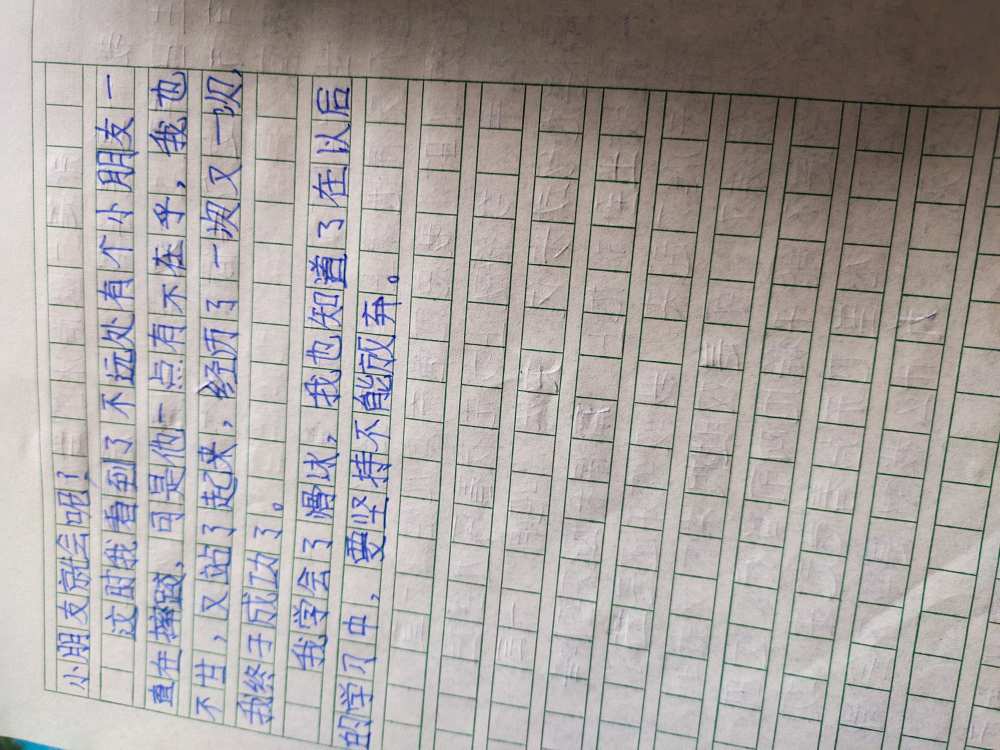 小朋友就会呢！
这时我看到了不远处有个小朋友一
直在摔跤，可是他一点有不在乎，我也
不甘，又站了起来，经历了一次又一次，
我终于成功了。
我学会了滑冰，我也知道了在以后
的学习中，要坚持不能放弃。